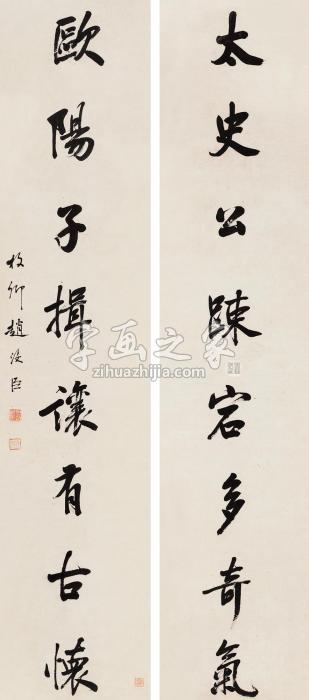 太史公踈宕多奇氣
歐陽子揖讓有古懷
卿趙汝臣
字画之家
zihuazhijia.com